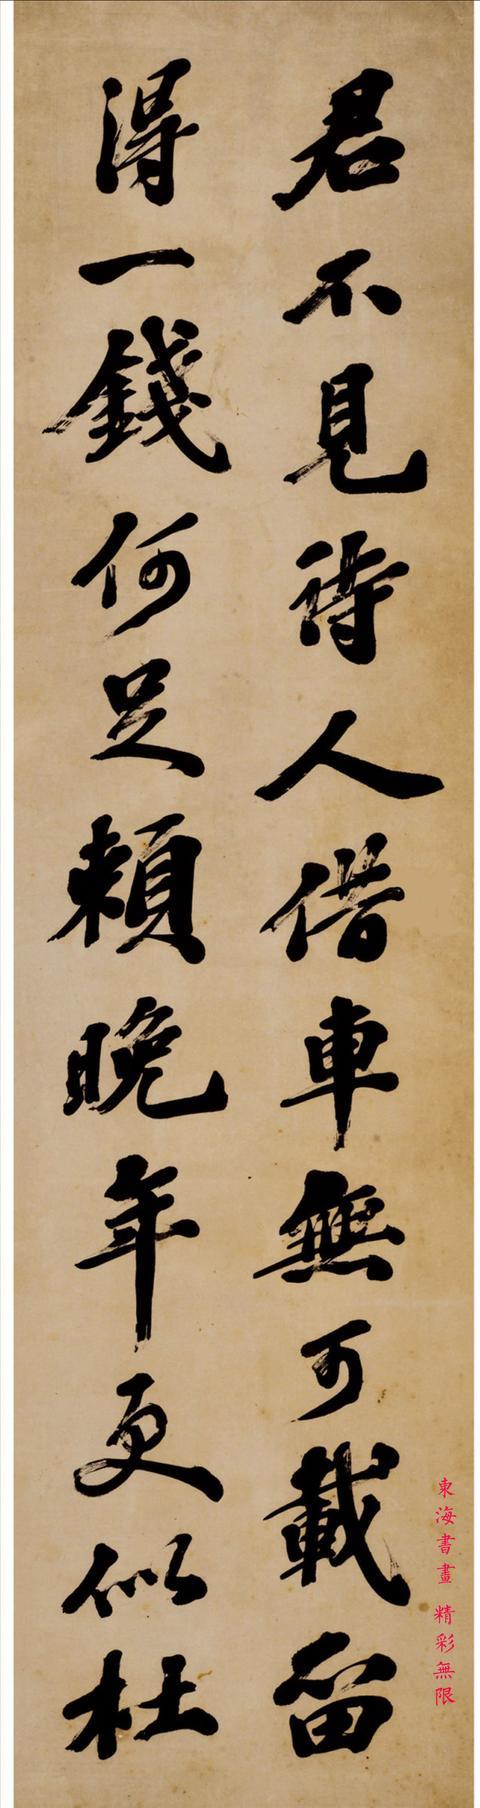 君不見詩人借車無可載留
得一錢何足賴晚年更似杜
東海書畫 精彩無限